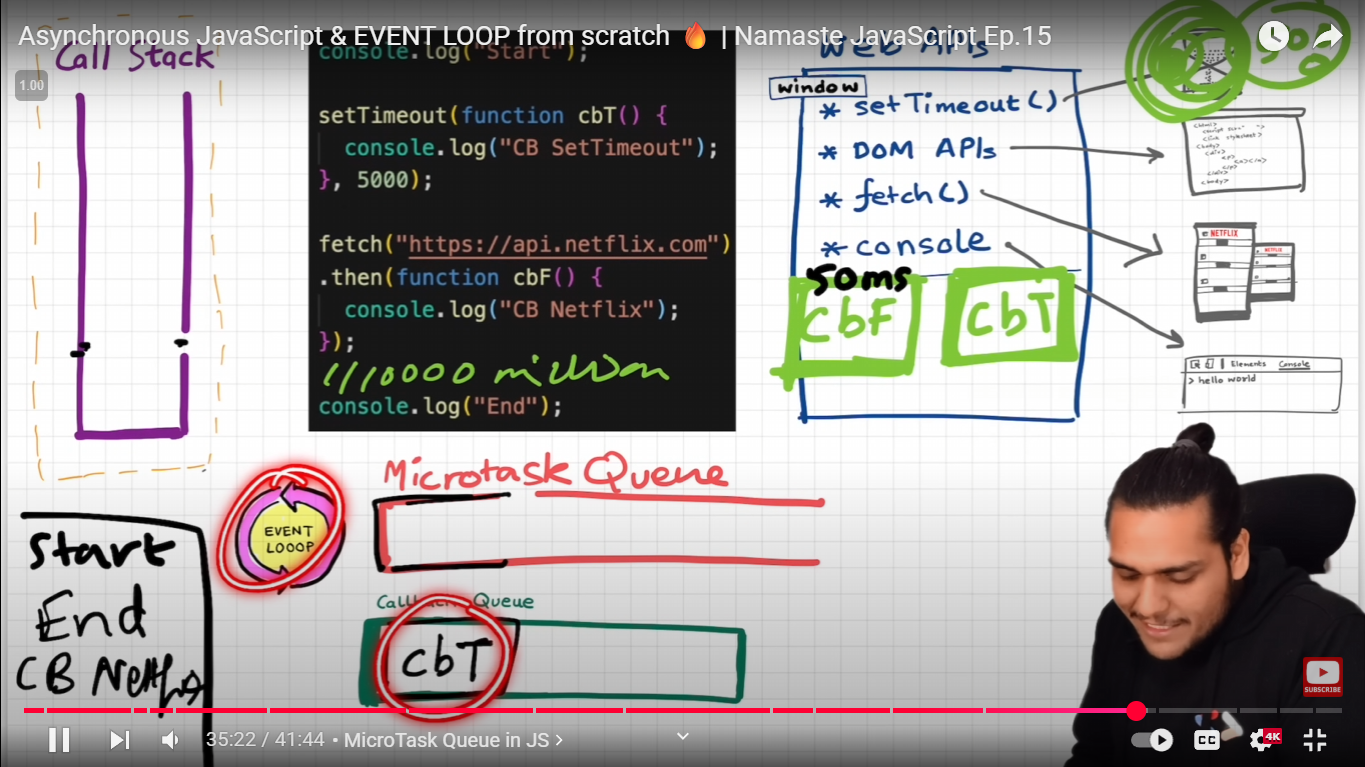 Asynchronous JavaScript & EVENT LOOP from scratch 🔥 | Namaste JavaScript Ep.15
Call Stack
1.00
console.log("Start");
setTimeout(function cbT() {
console.log("CB SetTimeout");
}, 5000);
fetch("https://api.netflix.com")
.then(function cbF() {
console.log("CB Netflix");
});
1//10000 million
console.log("End");
Web APIs
window
* setTimeout()
* DOM APIs
* fetch()
* console
50ms
CbF
CbT
NETFLIX
NETFLIX
Elements Console
> hello world
Microtask Queue
EVENT
LOOOP
Queue
cbT
Start
End
CB
SUBSCRIBE
35:22 / 41:44 • MicroTask Queue in JS >
CC
4K